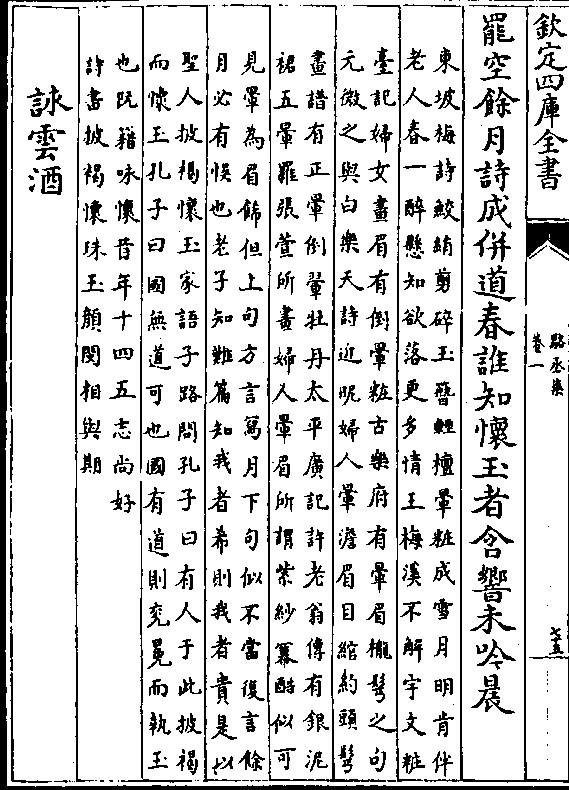 欽定四庫全書
卷一
罷空餘月詩成併道春誰知懷玉者含響未吟晨
東坡梅詩鮫綃剪碎玉簪輕檀暈粧成雪月明肯伴
老人春一醉懸知欲落更多情王梅溪不解宇文粧
臺記婦女畫眉有倒暈粧古樂府有暈眉櫳鬢之句
元微之與白樂天詩近昵婦人暈澹眉目綰約頭鬢
畫譜有正暈倒暈牡丹太平廣記許老翁傳有銀泥
裙五暈羅張萱所畫婦人暈眉所謂紫紗羃酷似可
見暈為眉飾但上句方言寫月下句似不當復言餘
月必有悮也老子知難篇知我者希則我者貴是以
聖人披褐懷玉家語子路問孔子曰有人于此披褐
而懷玉孔子曰國無道可也國有道則兖冕而執玉
也阮籍咏懷昔年十四五志尚好
詩書披褐懷珠玉顔閔相與期
詠雲酒